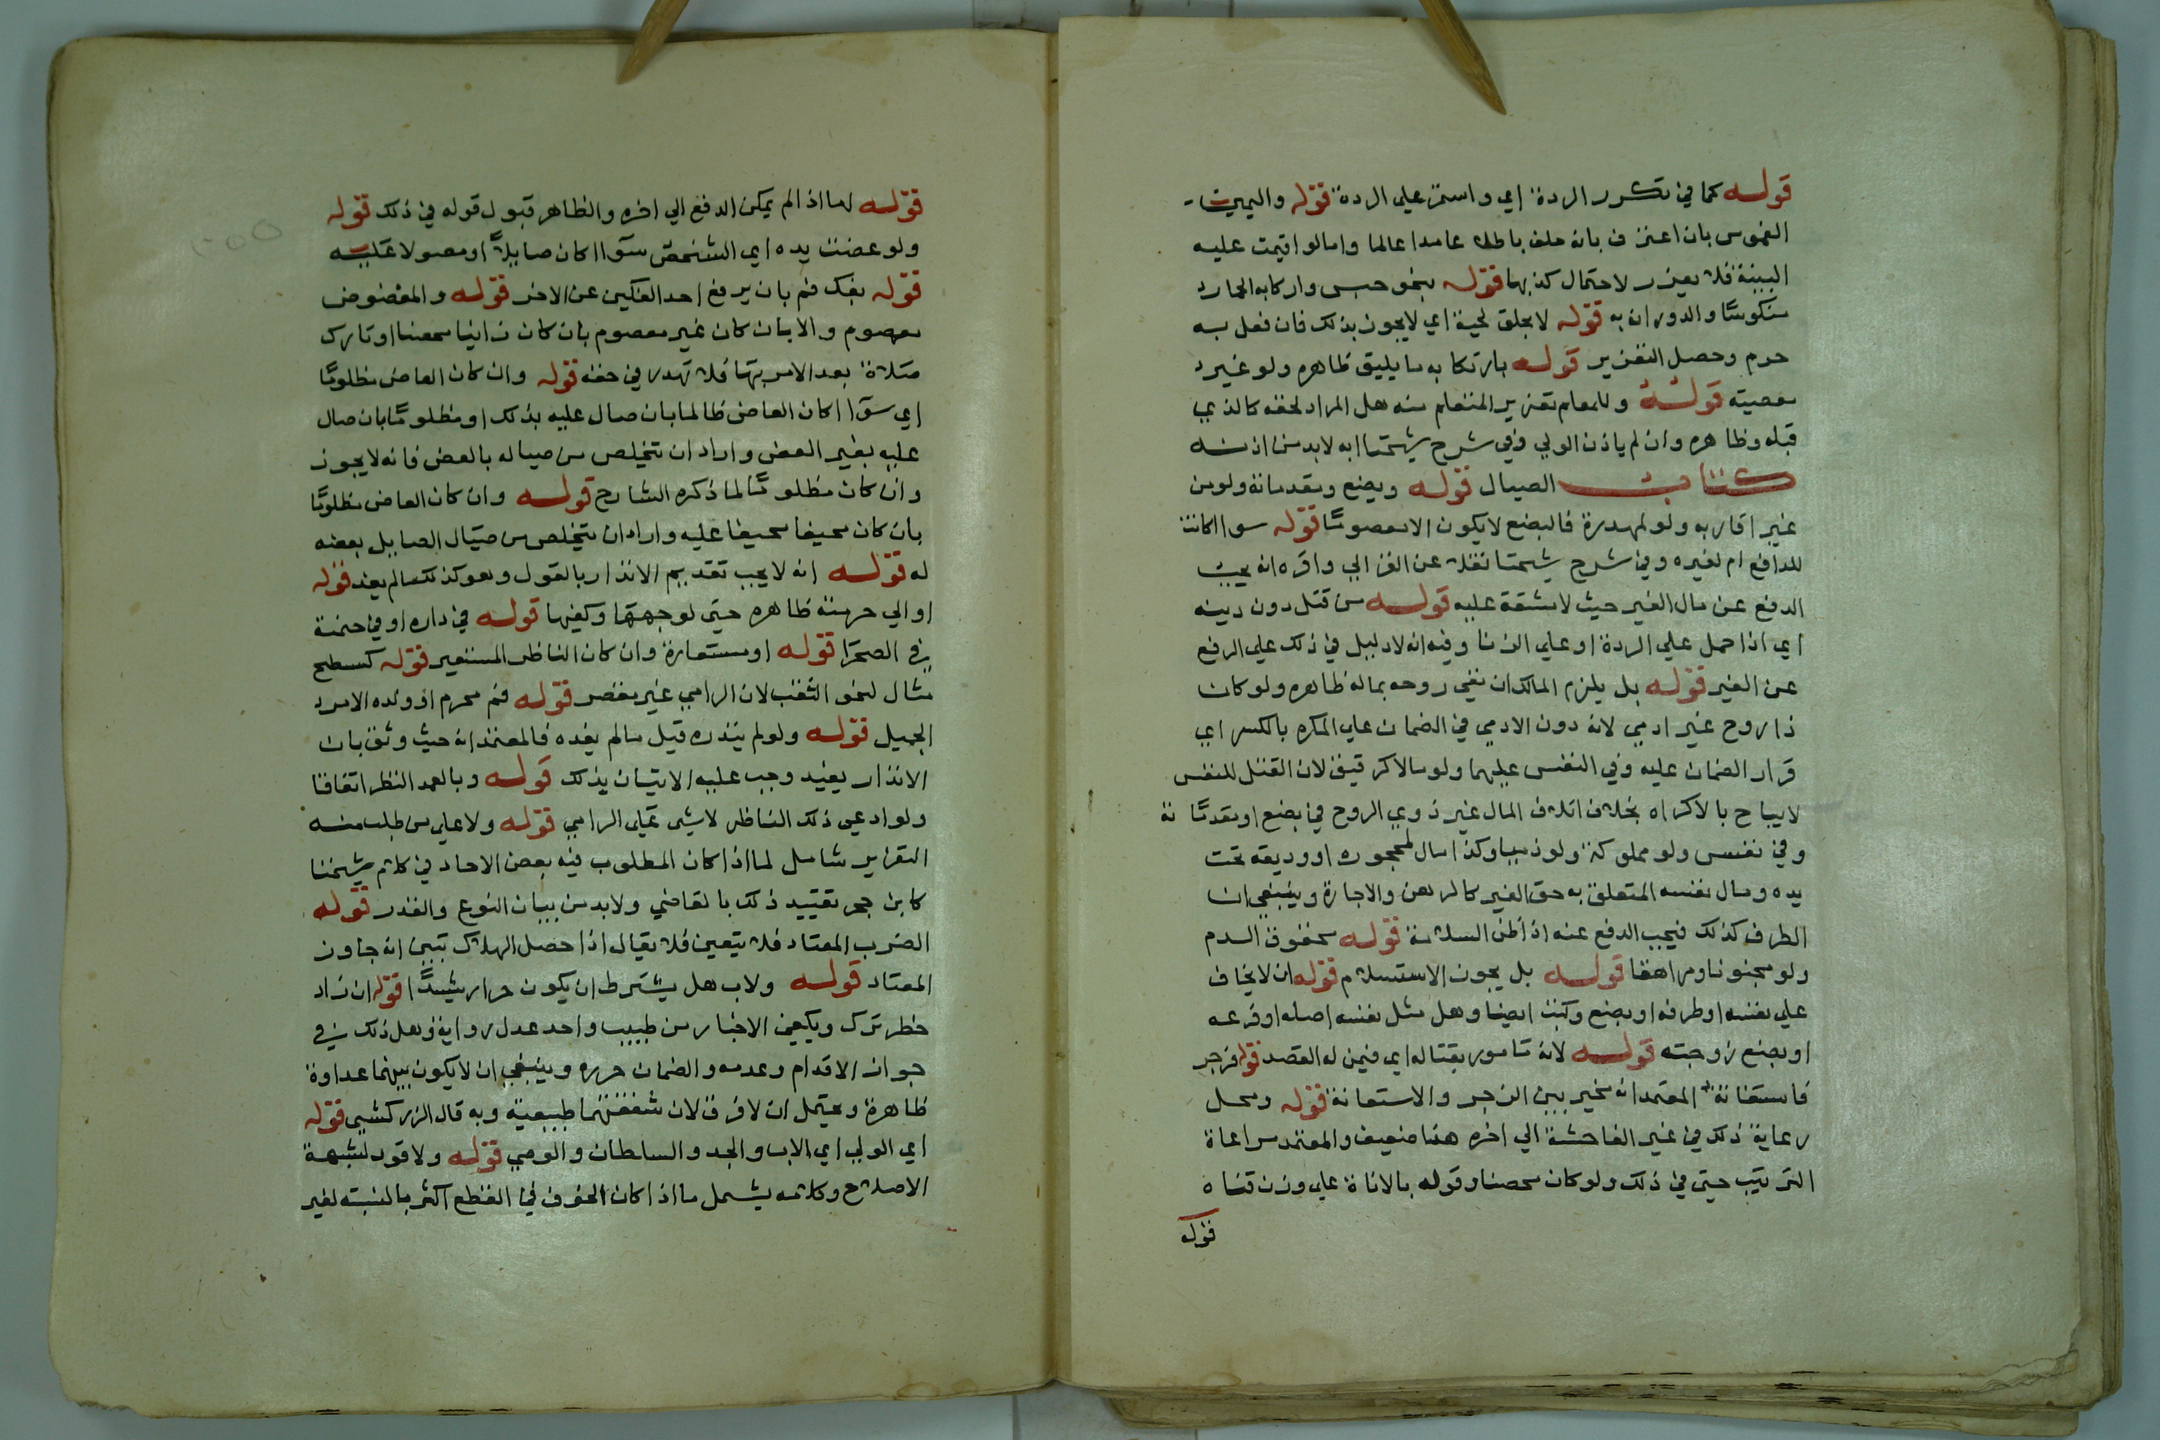 قوله كما في تكرر الردة اي واستمر علي الردة قوله واليمين
الغموس بان اعترف بانه حلف باطلا عامدا عالما واما لو اقيمت عليه
البينة فلا يعزر لاحتمال كذبها قوله بنحو حبس واركابه الحمار
منكوسا والدوران به قوله لا بحلق لحية اي لا يجوز بذلك فان فعل به
حرم وحصل التعزير قوله بارتكابه ما يليق ظاهره ولو غير
معصيته قوله وللمعلم تعزير المتعلم منه هل المراد لحقه كالذي
قبله وظاهره وان لم ياذن الولي وفي شرح شيخنا انه لابد من اذنه
كتاب الصيال قوله وبضع ومقدماته ولو من
غير اقاربه ولو لمهدرة فالبضع لا يكون الا معصوما قوله سوا اكانت
للدافع ام لغيره وفي شرح شيخنا نقلا عن الغزالي واقره انه يجب
الدفع عن مال الغير حيث لا مشقة عليه قوله من قتل دون دينه
اي اذا حمل علي الردة او علي الزنا وفيه انه لا دليل في ذلك علي الدفع
عن الغير قوله بل يلزم المالك ان يقي روحه بماله ظاهره ولو كان
ذا روح غير ادمي لانه دون الادمي في الضمان علي المكره بالكسر اي
قرار الضمان عليه وفي النفس عليهما ولو مالا كرقيق لان القتل للنفس
لا يباح بالاكراه بخلاف اتلاف المال غير ذوي الروح في بضع او مقدماته
وفي نفس ولو مملوكة ولو ذميا وكذا مال لمحجوره او وديعه تحت
يده ومال نفسه المتعلق به حق الغير كالرهن والاجارة وينبغي ان
الطرف كذلك فيجب الدفع عنه اذا ظن السلامة قوله محقون الدم
ولو مجنونا ومراهقا قوله بل يجوز الاستسلام قوله ان لا يخاف
علي نفسه او طرفه او بضع وكتب ايضا وهل مثل نفسه اصله او فرعه
او بضع زوجته قوله لانه مامور بقتاله اي فيمن له القصد قوله فزجر
فاستغاثة المعتمد انه مخير بين الزجر والاستغاثة قوله ومحل
رعاية ذلك في غير الفاحشة الي اخره هذا ضعيف والمعتمد مراعاة
الترتيب حتي في ذلك ولو كان محصنا وقوله بالاناة علي وزن قناة
قوله
قوله لما اذا لم يمكن الدفع الي اخره والظاهر قبول قوله في ذلك قوله
ولو عضت يده اي الشخص سوا اكان صايلا او مصولا عليه
قوله بفك فم بان يرفع احد الفكين عن الاخر قوله والمعضوض
معصوم والا بان كان غير معصوم بان كان زانيا محصنا او تارك
صلاة بعد الامر بها فلا تهدر في حقه قوله وان كان العاض مظلوما
اي سوا اكان العاض ظالما بان صال عليه بذلك او مظلوما بان صال
عليه بغير العض واراد ان يتخلص من صياله بالعض فانه لا يجوز
وان كان مظلوما لما ذكره الشارح قوله وان كان العاض مظلوما
بان كان محيفا عليه واراد ان يتخلص من صيال الصايل بعضه
له قوله انه لا يجب تقديم الانذار بالقول وهو كذلك ما لم يفد قوله
او الي حرمته ظاهره حتي لوجهها وكفيها قوله في داره او في خيمة
في الصحرا قوله او مستعارة وان كان الناظر المستعير قوله كسطح
مثال لنحو الثقب لان الرامي غير مقصر قوله فثم محرم او ولده الامرد
الجميل قوله ولو لم ينذره قبل ما لم يفده فالمعتمد انه حيث وثق بان
الانذار يفيد وجب عليه الاتيان بذلك قوله وبالعمد النظر اتفاقا
ولو ادعي ذلك الناظر لا شي علي الرامي قوله ولا علي من طلب منه
التعزير شامل لما اذا كان المطلوب فيه بعض الاحاد في كلام شيخنا
كابن حجر تقييد ذلك بالقاضي ولابد من بيان النوع والقدر قوله
الضرب المعتاد فلا يتعين فلا يقال اذا حصل الهلاك تبين انه جاوز
المعتاد قوله ولاب هل يشترط ان يكون حرا رشيدا قوله ان زاد
خطر ترك ويكفي الاخبار من طبيب واحد عدل رواية وهل ذلك في
جواز الاقدام وعدمه والضمان حرره وينبغي ان لا يكون بينهما عداوة
ظاهرة ويحتمل ان لا فرق لان شفقتهما طبيعية وبه قال الزركشي قوله
اي الولي اي الاب والجد والسلطان والوصي قوله ولا قود لشبهة
الاصلاح وكلامه يشمل ما اذا كان الخوف في القطع اكثر بالنسبة لغير